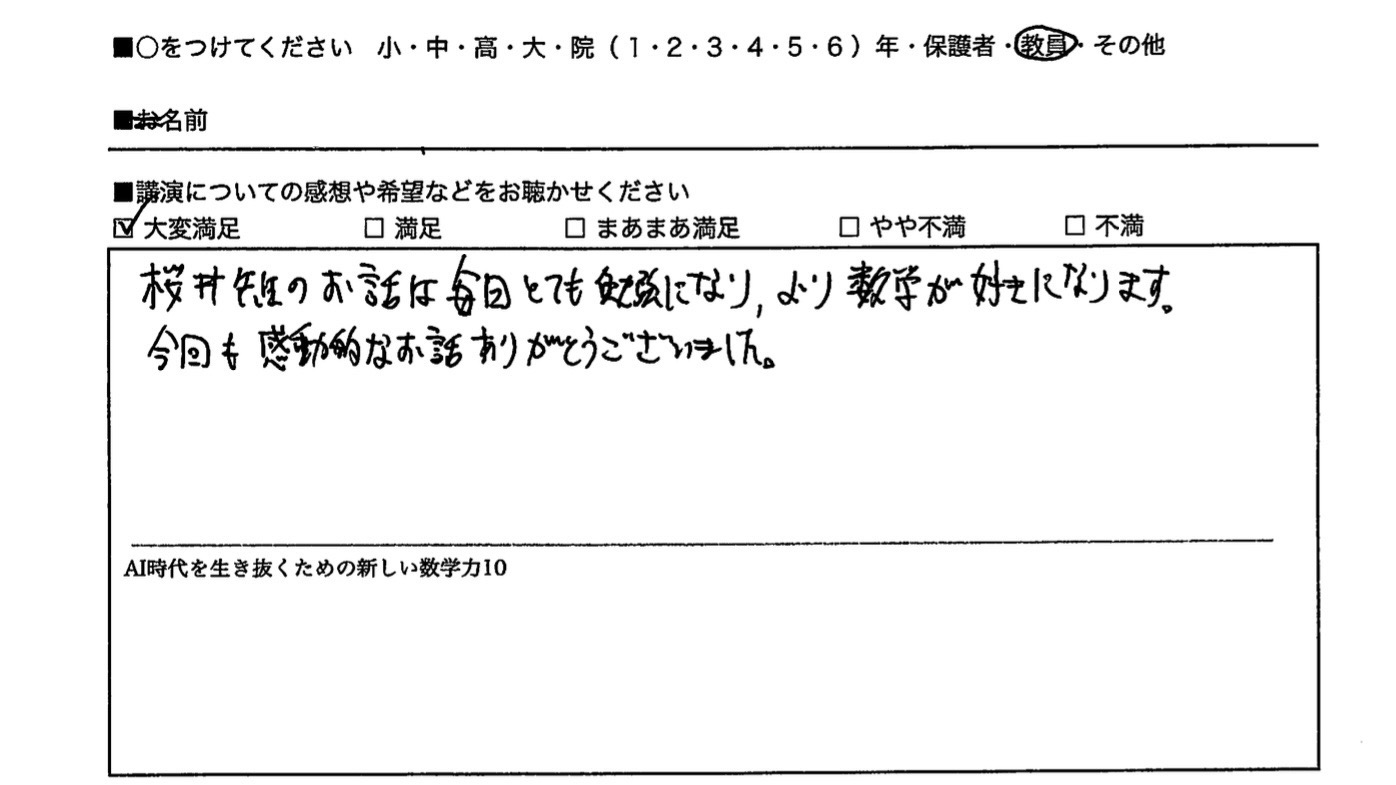 ■○をつけてください 小・中・高・大・院（１・２・３・４・５・６）年・保護者・教員・その他
■お名前
■講演についての感想や希望などをお聴かせください
☑ 大変満足 □ 満足 □ まあまあ満足 □ やや不満 □ 不満
桜井先生のお話は毎回とても勉強になり,より数学が好きになります。
今回も感動的なお話ありがとうございました。
AI時代を生き抜くための新しい数学力10